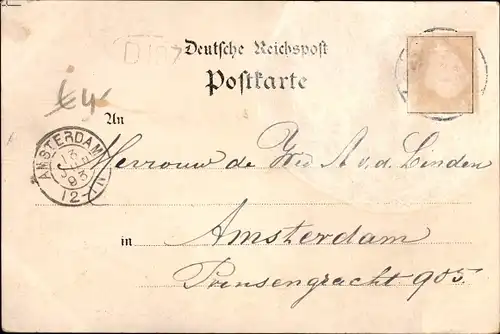 D 187
Deutsche Reichspost
Postkarte
An
Mevrouw de Wed A v. d. Linden
AMSTERDAM
12-
in Amsterdam
Prinsengracht 905.